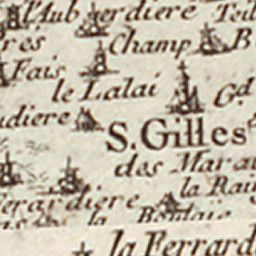 l'Aub erdiere Teil
rés Champ B
Fais
le Lalai Gd
udiere
S. Gilles
des Marau
la Rai
erardiere
la Boulaie
la Ferrard